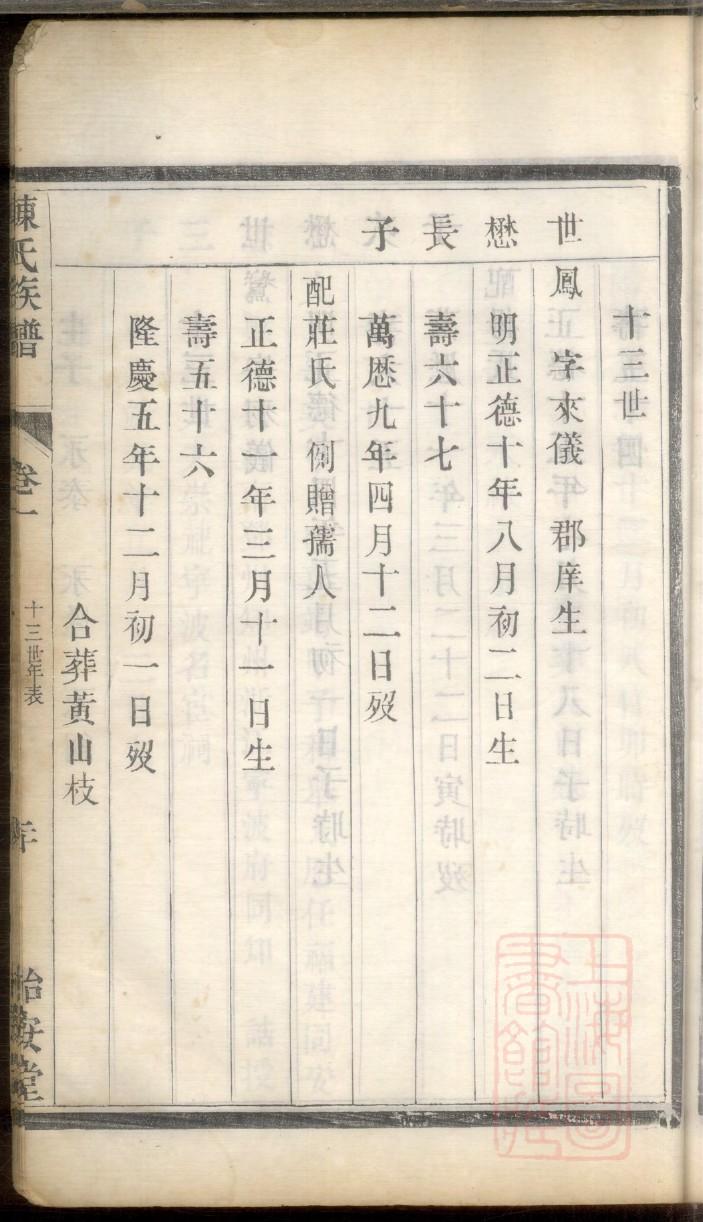 十三世
世鳳　字來儀　郡庠生
懋　明正德十年八月初二日生
長　壽六十七
子　萬厯九年四月十二日歿
配莊氏　例贈孺人
正德十一年三月十一日生
壽五十六
隆慶五年十二月初一日歿
合葬黃山枝
陳氏族譜　卷一　十三世年表　怡安堂
上海圖書館藏